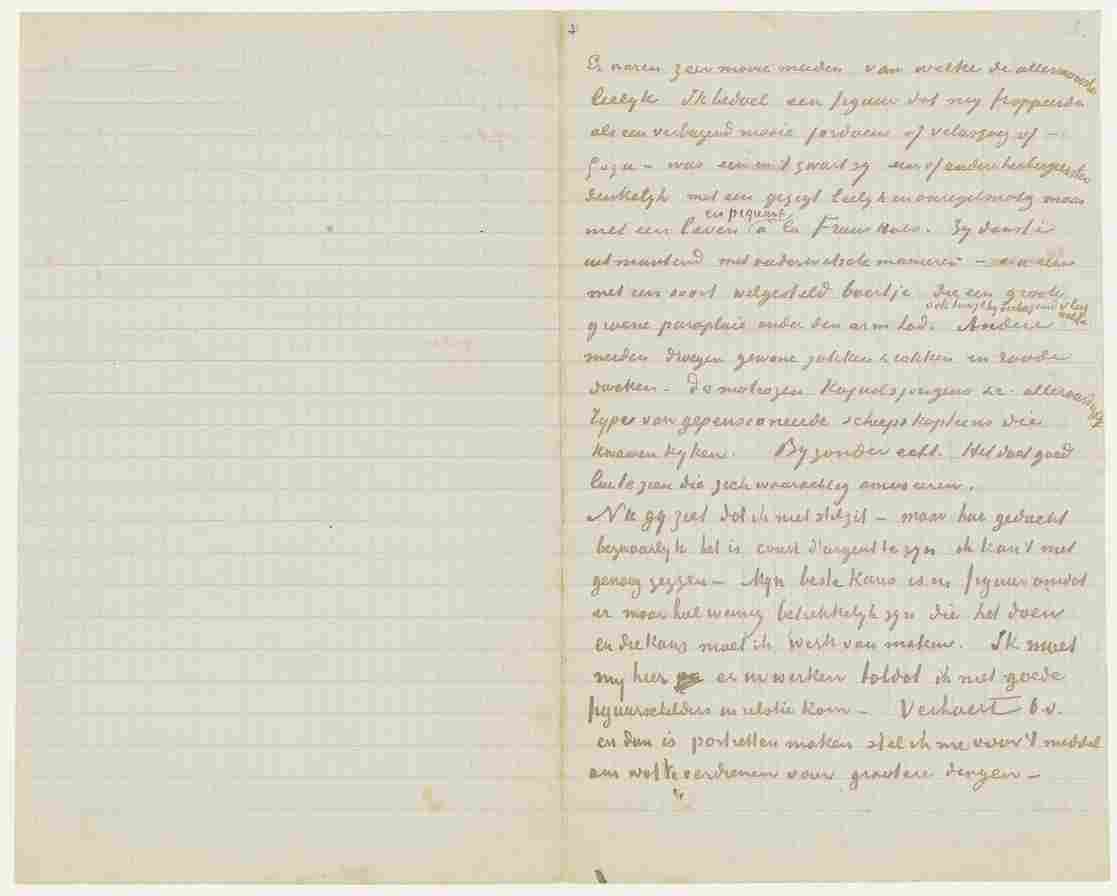 Er waren zeer mooie meiden van welke de allermooiste
leelyk. Ik bedoel een figuur dat my frappeerde
als een verbazend mooie Jordaens of Velasquez of –
Goya – was een in 't zwart zy een of andere herbergierster
denkelyk met een gezigt leelyk en onregelmatig maar
met een leven en piquant à la Frans Hals. Zy danste
uitmuntend met ouderwetsche manieren –
met een soort welgesteld boertje die een groote
groene paraplu onder den arm had ook terwyl hy verbazend vlug walste. Andere
meiden droegen gewone jakken & rokken en roode
doeken – de matrozen kajuitsjongens &c. alleraardigst
types van gepensioneerde scheepskapteins die
kwamen kyken. Byzonder echt. Het doet goed
lui te zien die zich waarachtig amuseeren.
Nu gy ziet dat ik niet stilzit – maar hoe gedacht
bezwaarlyk het is court d'argent te zyn ik kan 't niet
genoeg zeggen – Myn beste kans is in figuur omdat
er maar heel weinig betrekkelyk zyn die het doen
en die kans moet ik werk van maken. Ik moet
my hier er in werken totdat ik met goede
figuurschilders in relatie kom – Verhaert b.v.
en dan is portretten maken stel ik me voor 't middel
om wat te verdienen voor grootere dingen –